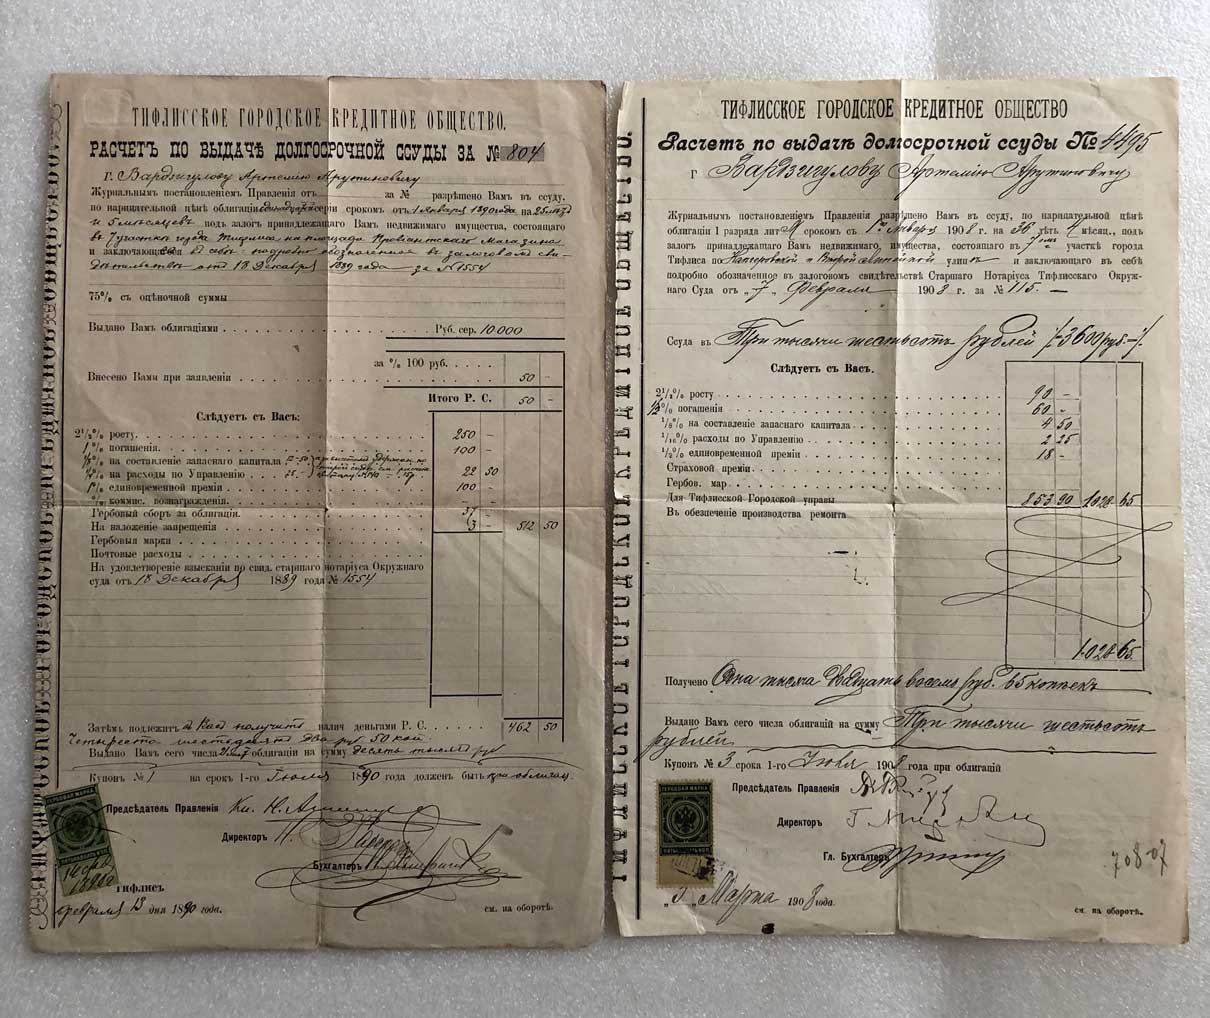 ТИФЛИССКОЕ ГОРОДСКОЕ КРЕДИТНОЕ ОБЩЕСТВО.
РАСЧЕТЪ ПО ВЫДАЧѢ ДОЛГОСРОЧНОЙ ССУДЫ ЗА № 804
Г. Вардзигулову Артемию Арутиновичу
Журнальнымъ постановленіемъ Правленія отъ за № разрѣшено Вамъ въ ссуду,
по нарицательной цѣнѣ облигаціи серіи срокомъ отъ 1 Января 1890 года на 25 лѣтъ
и 5 мѣсяцевъ подъ залогъ принадлежащаго Вамъ недвижимаго имущества, состоящаго
въ 7 участкѣ города Тифлиса на площади Провіантскаго Магазина
и заключающагося въ себѣ подробно обозначенное въ залоговомъ сви-
дѣтельствѣ отъ 18 Декабря 1889 года за № 1554
75% съ оцѣночной суммы
Выдано Вамъ облигаціями Руб. сер. 10.000
за % 100 руб.
Внесено Вами при заявленіи 50 -
Итого Р. С. 50 -
Слѣдуетъ съ Васъ:
2½% росту. 250 -
1% погашенія. 100 -
% на составленіе запаснаго капитала
% на расходы по Управленію 22 50
1% единовременной преміи 100 -
% коммис. вознагражденія. - -
Гербовый сборъ за облигаціи. 37 -
На наложеніе запрещенія 3 - 512 50
Гербовыя марки
Почтовые расходы
На удовлетвореніе взысканій по свид. старшаго нотаріуса Окружнаго
суда отъ 18 Декабря 1889 года № 1554
Затѣмъ подлежитъ Вамъ получить налич деньгами Р. С. 462 50
Четыреста шестьдесятъ два руб 50 коп.
Выдано Вамъ сего числа облигаціи на сумму десять тысячъ руб
Купонъ № 1 на срокъ 1-го Іюля 1890 года долженъ быть при облигац.
Предсѣдатель Правленія
Директоръ
Бухгалтеръ
ГЕРБОВАЯ МАРКА
Тифлисъ
Февраля 13 дня 1890 года.
см. на оборотѣ.
ТИФЛИССКОЕ ГОРОДСКОЕ КРЕДИТНОЕ ОБЩЕСТВО
Расчетъ по выдачѣ долгосрочной ссуды № 4495
Г Вардзигулову Артемію Арутиновичу
Журнальнымъ постановленіемъ Правленія разрѣшено Вамъ въ ссуду, по нарицательной цѣнѣ
облигаціи I разряда лит М срокомъ съ 1го Января 1908 г. на 36 лѣтъ 4 мѣсяц., подъ
залогъ принадлежащаго Вамъ недвижимаго имущества, состоящаго въ 7омъ участкѣ города
Тифлиса по и Второй улицѣ и заключающаго въ себѣ
подробно обозначенное въ залоговомъ свидѣтельствѣ Старшаго Нотаріуса Тифлисскаго Окруж-
наго Суда отъ „7" Февраля 1908 г. за № 115. -
Ссуда въ Три тысячи шестьсотъ рублей /-3600 руб.-/.
Слѣдуетъ съ Васъ.
2½% росту 90 -
½% погашенія 60 -
⅛% на составленіе запаснаго капитала 4 50
1/16% расходы по Управленію 2 25
½% единовременной преміи 18 -
Страховой преміи
Гербов. мар.
Для Тифлисской Городской управы 853 90 1028 65
Въ обезпеченіе производства ремонта
1028 65.
Получено Одна тысяча двадцать восемь руб. 65 копѣекъ
Выдано Вамъ сего числа облигацій на сумму Три тысячи шестьсотъ
рублей
Купонъ № 3 срока 1-го Іюля 1908 года при облигаціи
Предсѣдатель Правленія
Директоръ
Гл. Бухгалтеръ
708-07
ГЕРБОВАЯ МАРКА
„1" Марта 1908 года.
см. на оборотѣ.